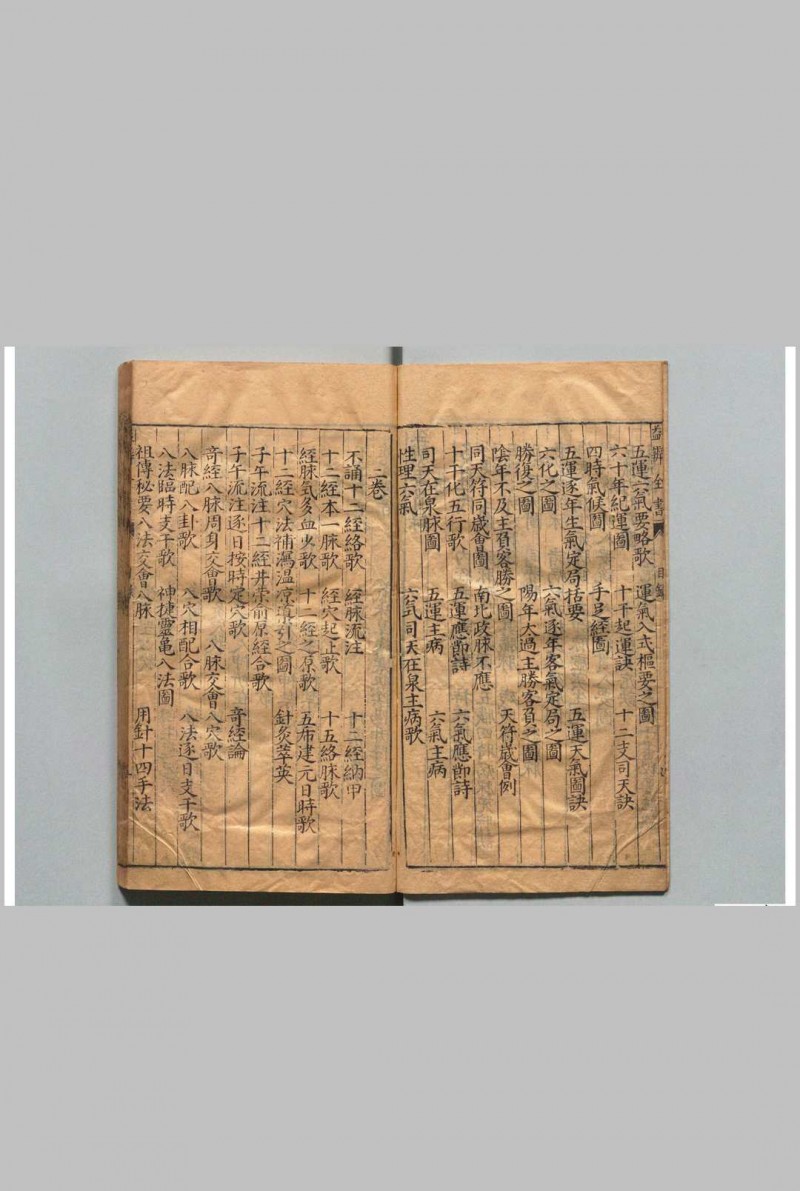 五運六氣要略歌 運氣入式樞要之圖
六十年紀運圖 十干起運訣 十二支司天訣
四時氣候圖 手足經圖
五運逐年生氣定局括要 五運天氣圖訣
六化之圖 六氣逐年客氣定局之圖
勝復之圖 陽年太過主勝客負之圖
陰年不及主負客勝之圖 天符歲會例
同天符同歲會圖 南北政脉不應
十干化五行歌 五運應節詩 六氣應節詩
司天在泉脉圖 五運主病 六氣主病
性理六氣 六氣司天在泉主病歌
二卷
不誦十二經絡歌 經脉流注 十二經納甲
十二經本一脉歌 經穴起止歌 十五絡脉歌
經脉氣多血少歌 十二經之原歌 五布建元日時歌
十二經穴法補瀉溫涼填引之圖 針灸萃英
子午流注十二經井滎俞原經合歌
子午流注逐日按時定穴歌 奇經論
奇經八脉周身交會歌 八脉交會八穴歌
八脉配八卦歌 八穴相配合歌 八法逐日支干歌
八法臨時支干歌 神捷靈亀八法圖
祖傳秘要八法交會八脉 用針十四手法